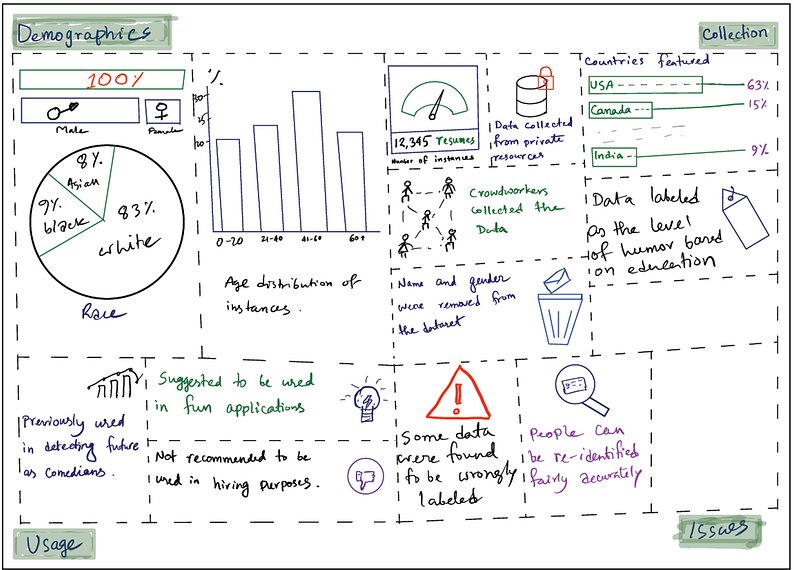 Demographics
Collection
100%
Male
Female
8%
Asian
9%
black
83%
white
Race
%
30
15
10
0-20
21-40
41-60
60+
Age distribution of
instances.
12,345 resumes
Number of instances
Data collected
from private
resources
Countries featured
USA
63%
Canada
15%
India
9%
Crowdworkers
collected the
Data
Data labeled
as the level
of humor based
on education
Name and gender
were removed from
the dataset
Previously used
in detecting future
as comedians.
Suggested to be used
in fun applications
Not recommended to be
used in hiring purposes.
Some data
were found
to be wrongly
labeled
People can
be re-identified
fairly accurately
Usage
Issues